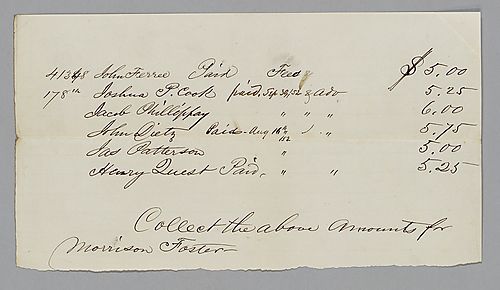 John Ferree Paid Fees $ 5.00
178th Joshua P. Cook paid, & Adv 5.25
Jacob Phillippay " " " 6.00
John Dietz Paid Aug " 5.75
Jas Patterson " 5.00
Henry Quest Paid, " " 5.25
Collect the above amounts for
Morrison Foster